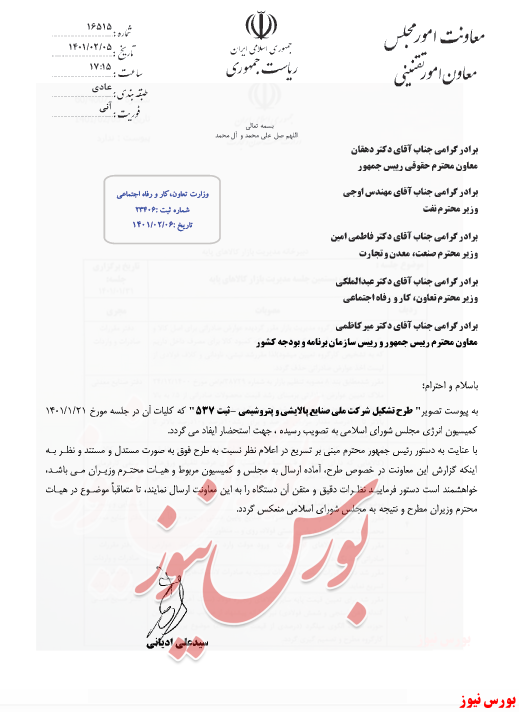 معاونت امور مجلس
معاون امور تقنینی
جمهوری اسلامی ایران
ریاست جمهوری
شماره : ۱۶۵۱۵
تاریخ : ۱۴۰۱/۰۲/۰۵
ساعت : ۱۷:۱۵
طبقه بندی : عادی
فوریت : آنی
بسمه تعالی
اللهم صل علی محمد و آل محمد
وزارت تعاون، کار و رفاه اجتماعی
شماره ثبت :۲۳۴۰۶
تاریخ :۱۴۰۱/۰۲/۰۶
برادر گرامی جناب آقای دکتر دهقان
معاون محترم حقوقی رییس جمهور
برادر گرامی جناب آقای مهندس اوجی
وزیر محترم نفت
برادر گرامی جناب آقای دکتر فاطمی امین
وزیر محترم صنعت، معدن و تجارت
برادر گرامی جناب آقای دکتر عبدالملکی
وزیر محترم تعاون، کار و رفاه اجتماعی
برادر گرامی جناب آقای دکتر میرکاظمی
معاون محترم رییس جمهور و رییس سازمان برنامه و بودجه کشور
باسلام و احترام؛
به پیوست تصویر" طرح تشکیل شرکت ملی صنایع پالایشی و پتروشیمی –ثبت ۵۳۷ " که کلیات آن در جلسه مورخ ۱۴۰۱/۱/۲۱
کمیسیون انرژی مجلس شورای اسلامی به تصویب رسیده ، جهت استحضار ایفاد می گردد.
با عنایت به دستور رئیس جمهور محترم مبنی بر تسریع در اعلام نظر نسبت به طرح فوق به صورت مستدل و مستند و نظر به
اینکه گزارش این معاونت در خصوص طرح، آماده ارسال به مجلس و کمیسیون مربوط و هیات محترم وزیران می باشد،
خواهشمند است دستور فرمایید نظرات دقیق و متقن آن دستگاه را به این معاونت ارسال نمایند، تا متعاقباً موضوع در هیات
محترم وزیران مطرح و نتیجه به مجلس شورای اسلامی منعکس گردد.
بورس نیوز
سیدعلی ادیانی
بورس نیوز